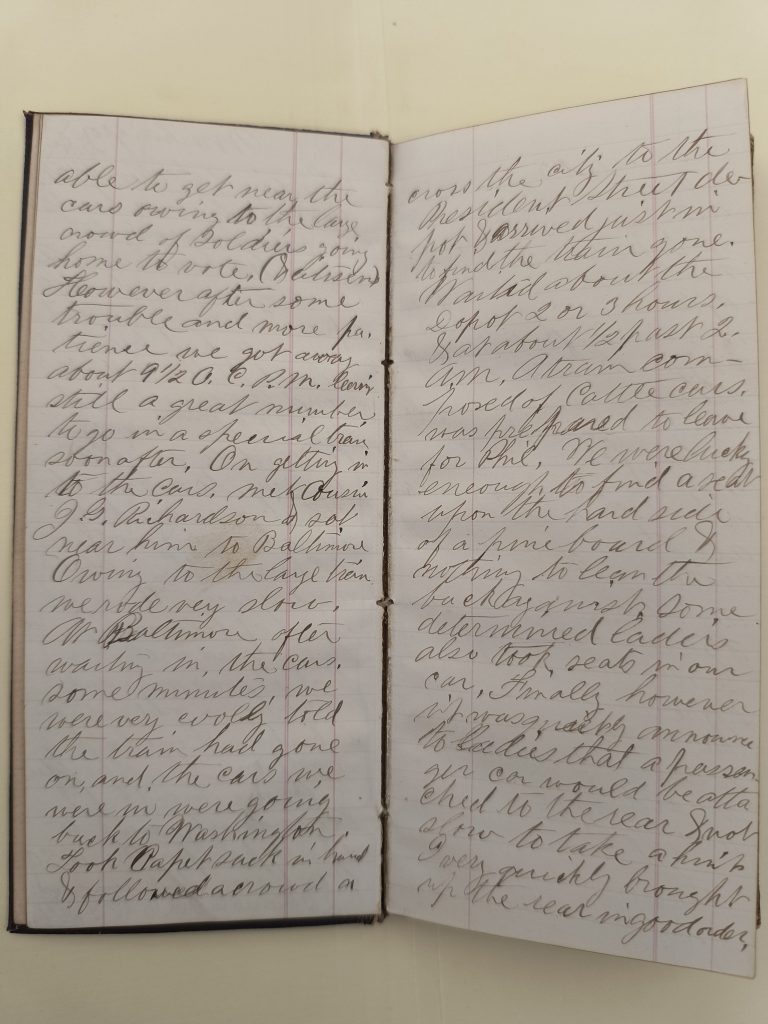 able to get near the
cars owing to the large
crowd of Soldiers going
home to vote. (& citizens)
However after some
trouble and more pa-
tience we got away
about 9 1/2 O. C. P.M. leaving
still a great number
to go in a special train
soon after. On getting in
to the cars. met Cousin
J. G. Richardson & sat
near him to Baltimore
Owing to the large train
we rode vey slow.
At Baltimore after
waiting in, the cars.
some minutes, we
were very coolly told
the train had gone
on, and, the cars we
were in were going
back to Washington.
Took Capet sack in hand
& followed a crowd a
cross the city to the
President Street de
pot & arrived just in
to find the train gone.
Waited about the
Dopot 2 or 3 hours.
& at about 1/2 past 2.
A.M. A train com-
posed of Cattle cars.
was prepared to leave
for Phil. We were lucky
eneough to find a seat
upon the hard side
of a pine board &
nothing to lean the
back against. Some
determined ladies
also took seats in our
car. Finally however
it was quickly announce
to ladies that a passen
ger car would be atta
ched to the rear & not
slow to take a hint
I very quickly brought
up the rear in good order.